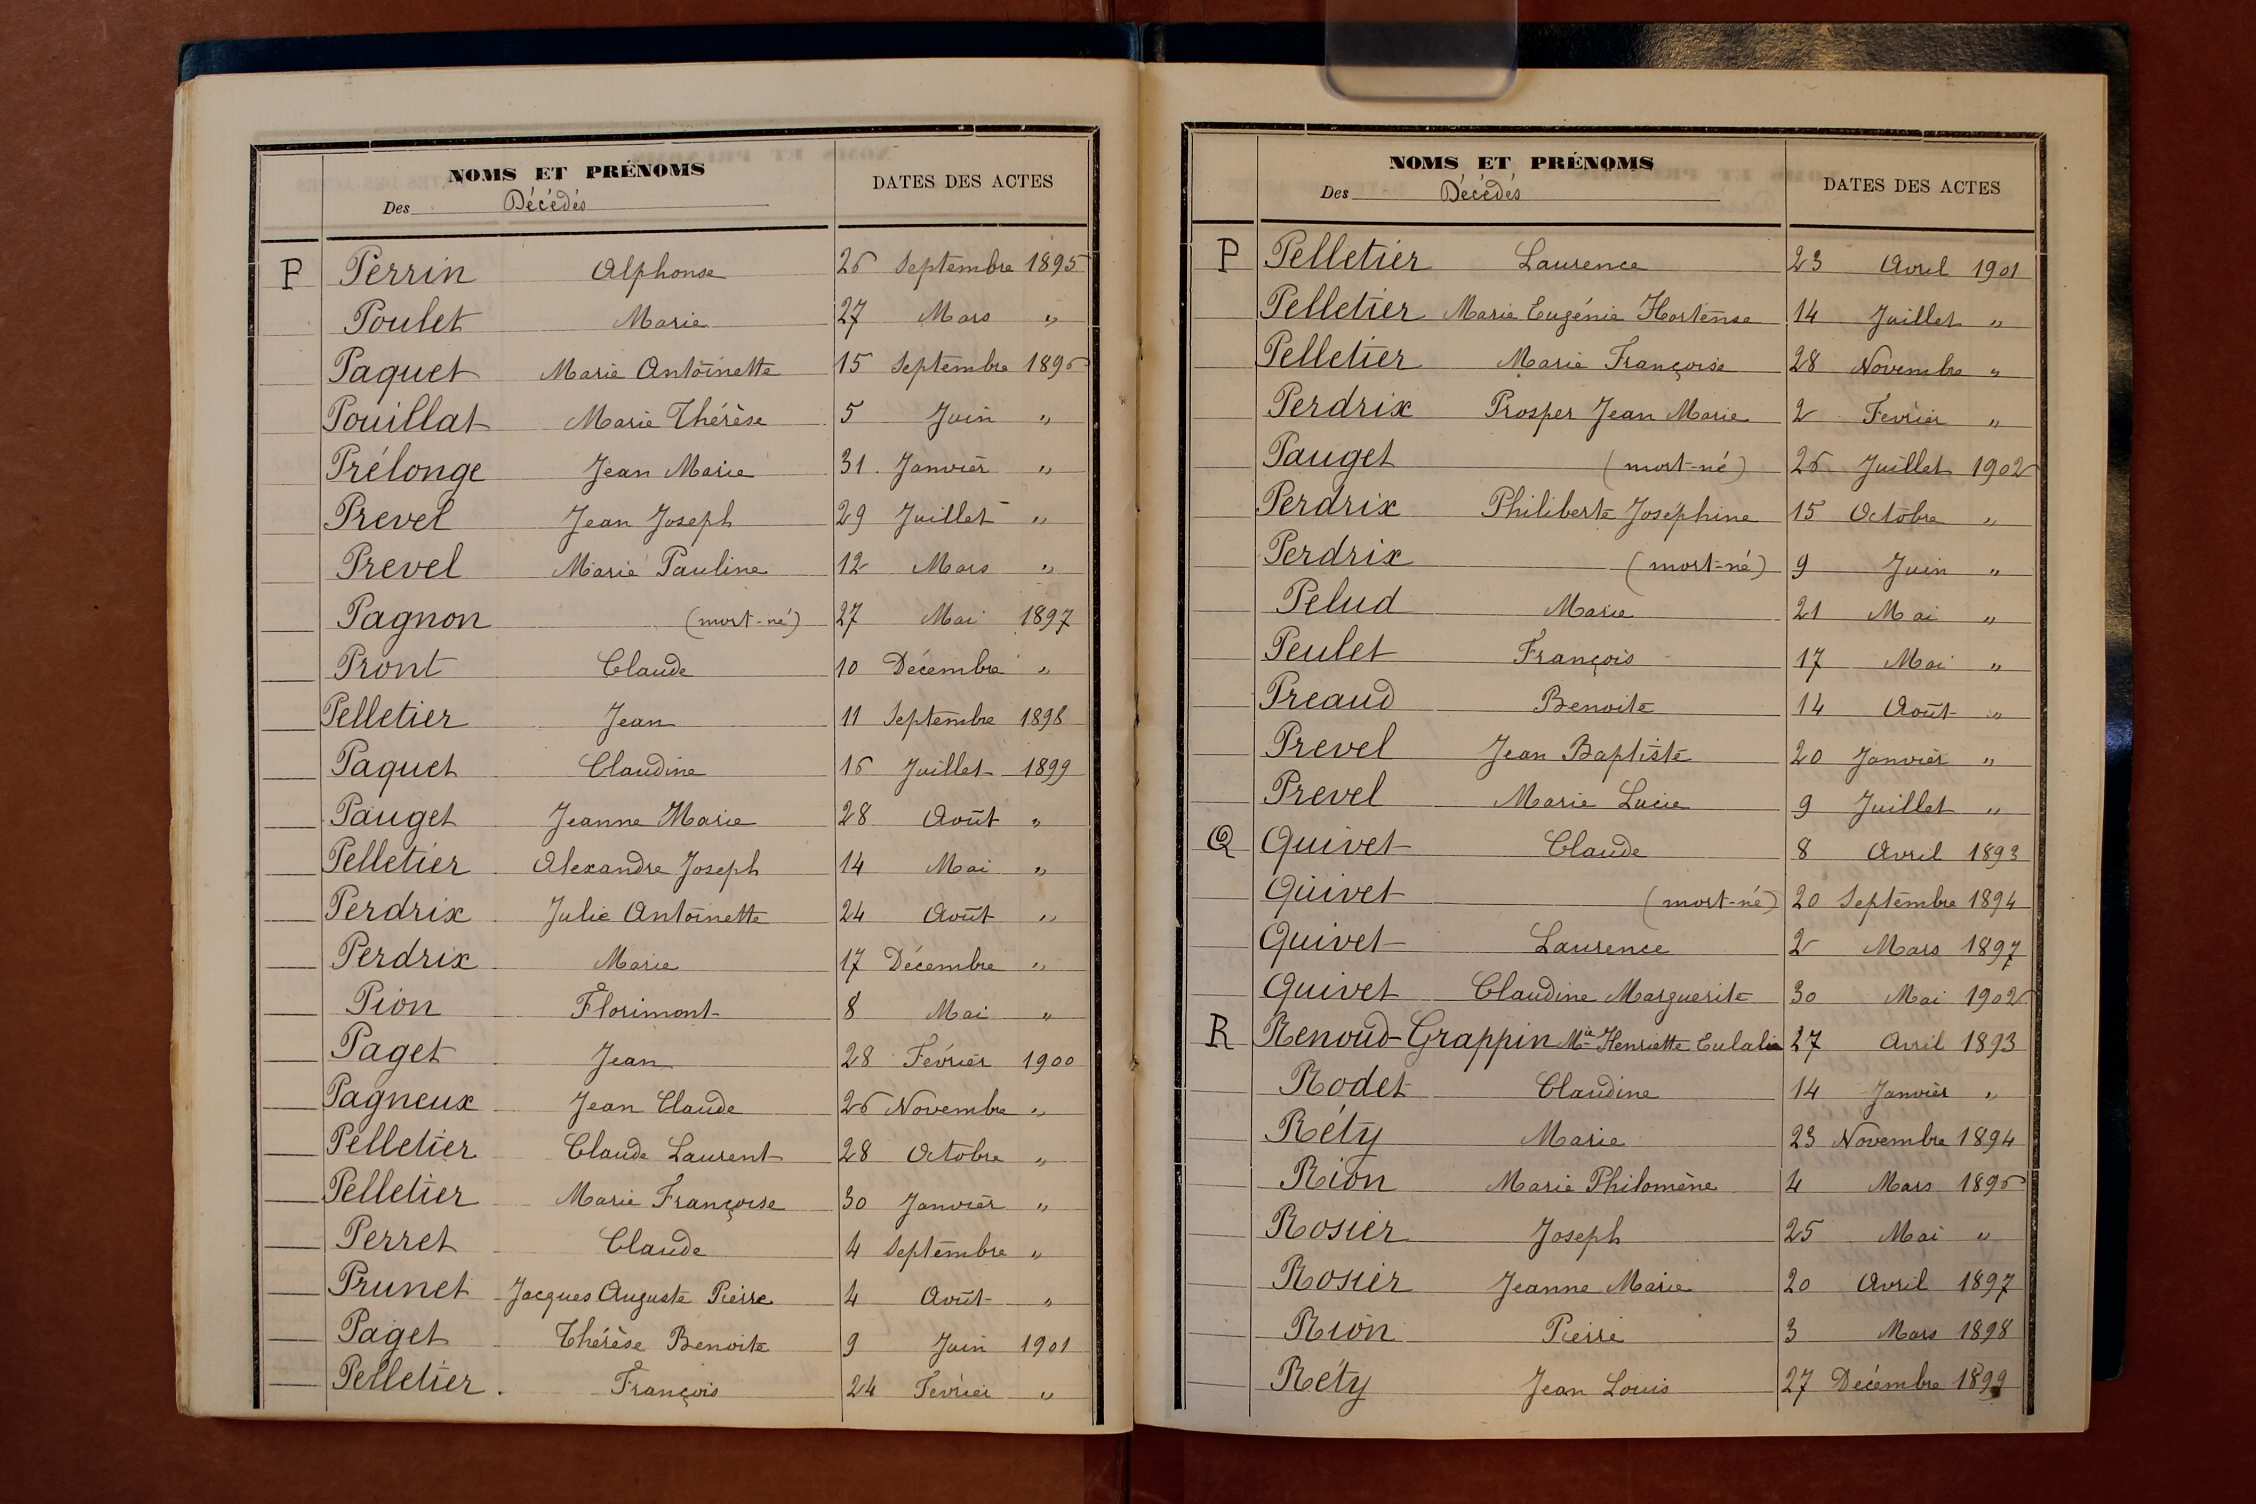 NOMS ET PRÉNOMS
DATES DES ACTES
Des Décédés
P Perrin Alphonse 26 Septembre 1895
Poulet Marie 27 Mars "
Paquet Marie Antoinette 15 Septembre 1896
Pouillat Marie Thérèse 5 Juin "
Prélonge Jean Marie 31 Janvier "
Prevel Jean Joseph 29 Juillet "
Prevel Marie Pauline 12 Mars "
Pagnon (mort-né) 27 Mai 1897
Pront Claude 10 Décembre "
Pelletier Jean 11 Septembre 1898
Paquet Claudine 16 Juillet 1899
Pauget Jeanne Marie 28 Août "
Pelletier Alexandre Joseph 14 Mai "
Perdrix Julie Antoinette 24 Août "
Perdrix Marie 17 Décembre "
Pion Florimont 8 Mai "
Paget Jean 28 Février 1900
Pagneux Jean Claude 26 Novembre "
Pelletier Claude Laurent 28 Octobre "
Pelletier Marie Françoise 30 Janvier "
Perret Claude 4 Septembre "
Prunet Jacques Auguste Pierre 4 Août "
Paget Thérèse Benoite 9 Juin 1901
Pelletier François 24 Février "
NOMS ET PRÉNOMS
DATES DES ACTES
Des Décédés
P Pelletier Laurence 23 Avril 1901
Pelletier Marie Eugénie Hortense 14 Juillet "
Pelletier Marie Françoise 28 Novembre "
Perdrix Prosper Jean Marie 2 Fevrier "
Pauget (mort-né) 26 Juillet 1902
Perdrix Philiberte Joséphine 15 Octobre "
Perdrix (mort-né) 9 Juin "
Pelud Marie 21 Mai "
Peulet François 17 Mai "
Preaud Benoite 14 Août "
Prevel Jean Baptiste 20 Janvier "
Prevel Marie Lucie 9 Juillet "
Q Quivet Claude 8 Avril 1893
Quivet (mort-né) 20 Septembre 1894
Quivet Laurence 2 Mars 1897
Quivet Claudine Marguerite 30 Mai 1902
R Renoud-Grappin Mie Henriette Eulalie 27 Avril 1893
Rodet Claudine 14 Janvier "
Réty Marie 23 Novembre 1894
Rion Marie Philomène 4 Mars 1896
Rosier Joseph 25 Mai "
Rosier Jeanne Marie 20 Avril 1897
Rion Pierre 3 Mars 1898
Réty Jean Louis 27 Décembre 1899